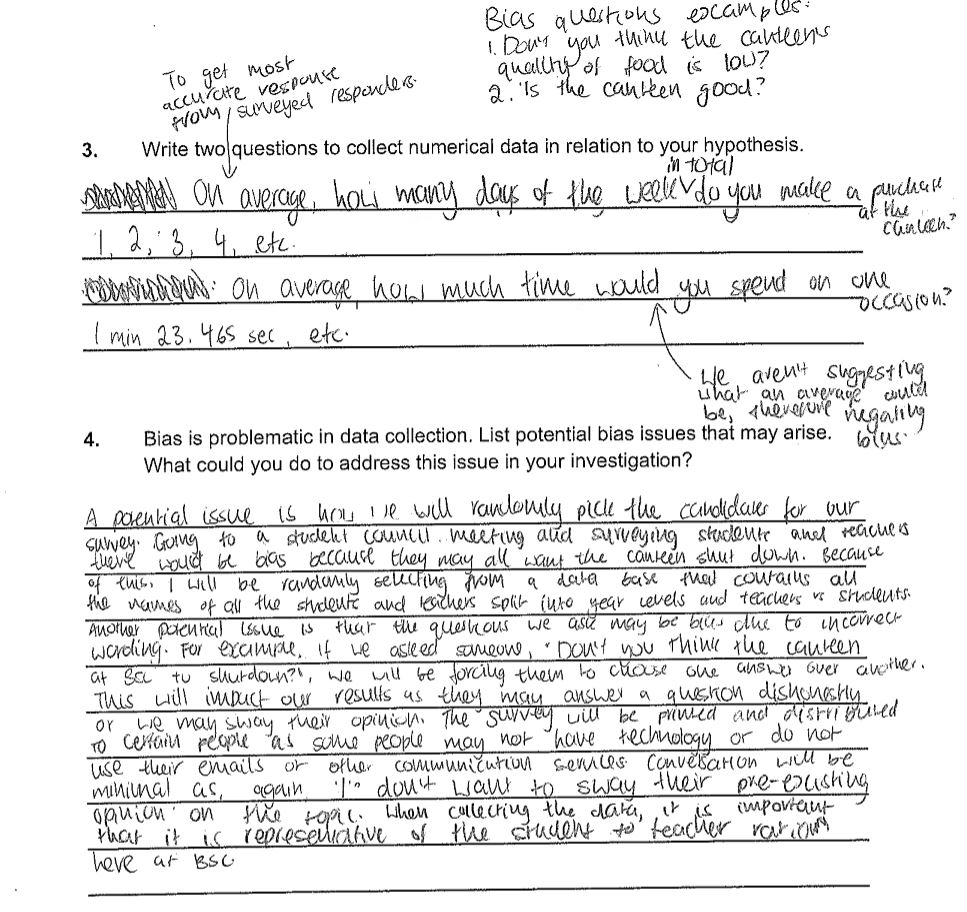 Bias questions examples:
1. Don't you think the canteen's
quality of food is low?
2. Is the canteen good?
To get most
accurate response
from surveyed responders.
3. Write two questions to collect numerical data in relation to your hypothesis.
On average, how many days of the week in total do you make a purchase
at the
canteen?
1, 2, 3, 4, etc.
: On average, how much time would you spend on one
occasion?
1 min 23.465 sec, etc.
We aren't suggesting
what an average could
be, therefore negating
bias.
4. Bias is problematic in data collection. List potential bias issues that may arise.
What could you do to address this issue in your investigation?
A potential issue is how we will randomly pick the candidates for our
survey. Going to a student council meeting and surveying students and teachers
there would be bias because they may all want the canteen shut down. Because
of this, I will be randomly selecting from a data base that contains all
the names of all the students and teachers split into year levels and teachers vs students.
Another potential issue is that the questions we ask may be bias due to incorrect
wording. For example, if we asked someone, "Don't you think the canteen
at BSC to shutdown?", we will be forcing them to choose one answer over another.
This will impact our results as they may answer a question dishonestly
or we may sway their opinion. The survey will be printed and distributed
to certain people as some people may not have technology or do not
use their emails or other communication services. Conversation will be
minimal as, again "I" don't want to sway their pre-existing
opinion on the topic. When collecting the data, it is important
that it is representative of the student to teacher
here at BSC